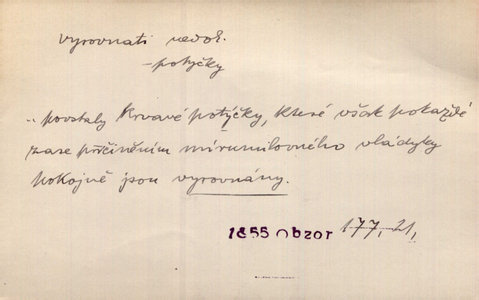 vyrovnati nedok.
-potyčky
.. povstaly krvavé potyčky, které však pokaždé
zase přičiněním mírumilovného vládyky
pokojně jsou vyrovnány.
1855 Obzor 177, 21,